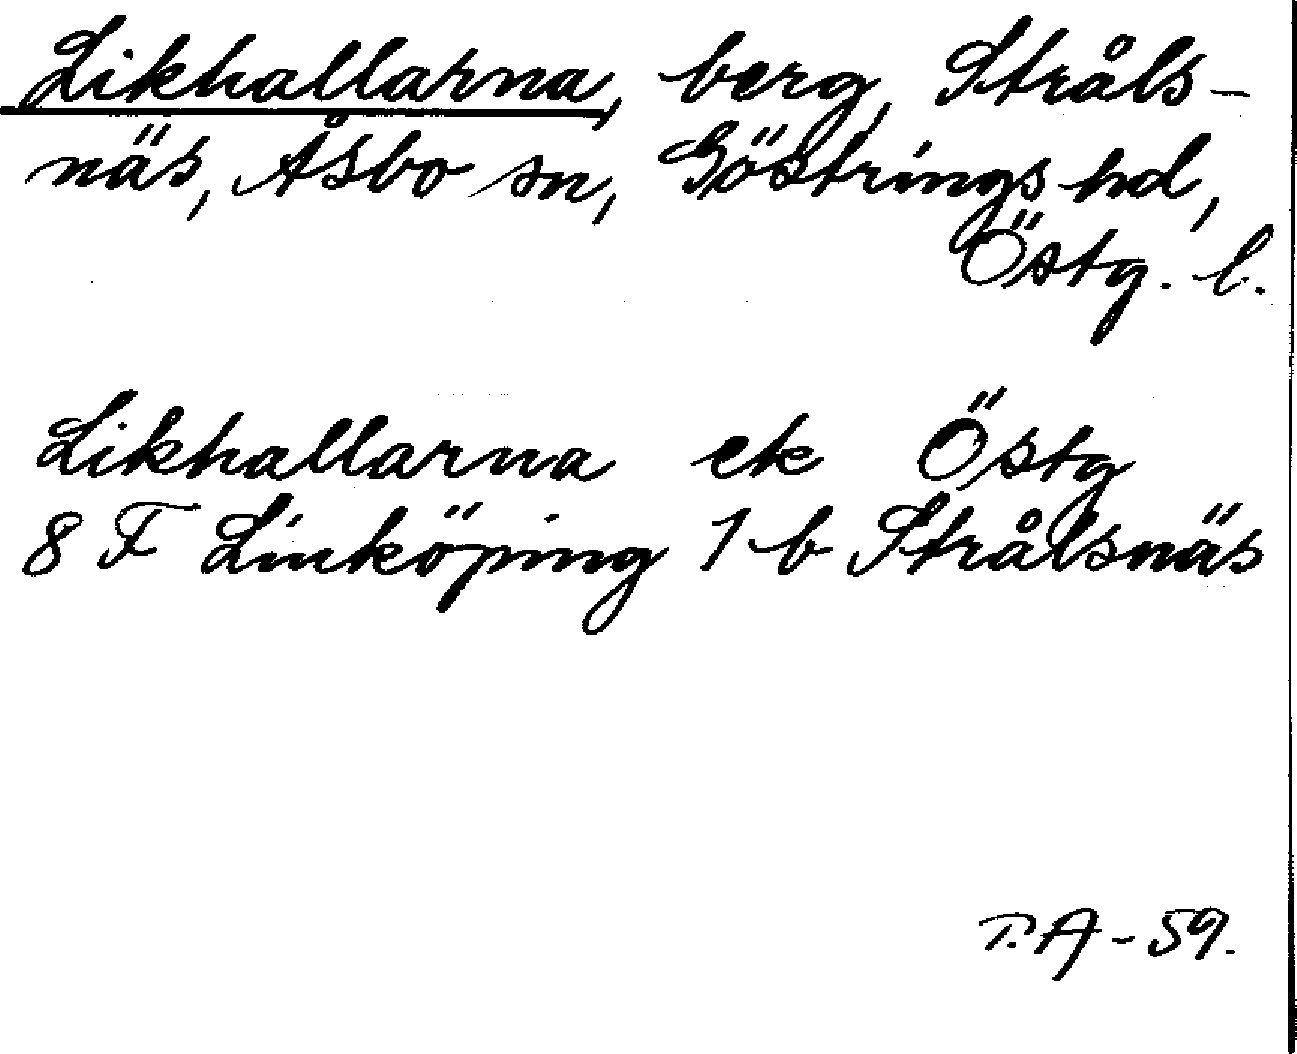 Likhallarna, berg, Stråls-
näs, Åsbo sn, Göstrings hd,
Östg. l.
Likhallarna ek Östg
8 F Linköping 1 b Strålsnäs
T.A-59.